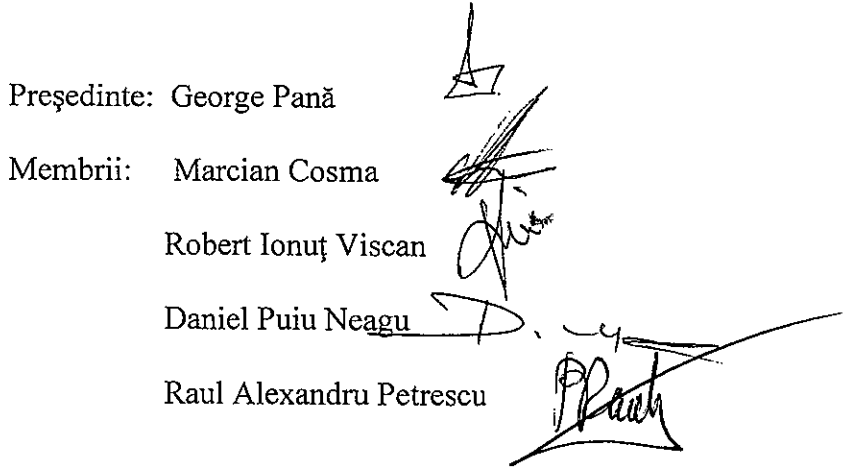 Preşedinte: George Pană
Membrii: Marcian Cosma
Robert Ionuţ Viscan
Daniel Puiu Neagu
Raul Alexandru Petrescu